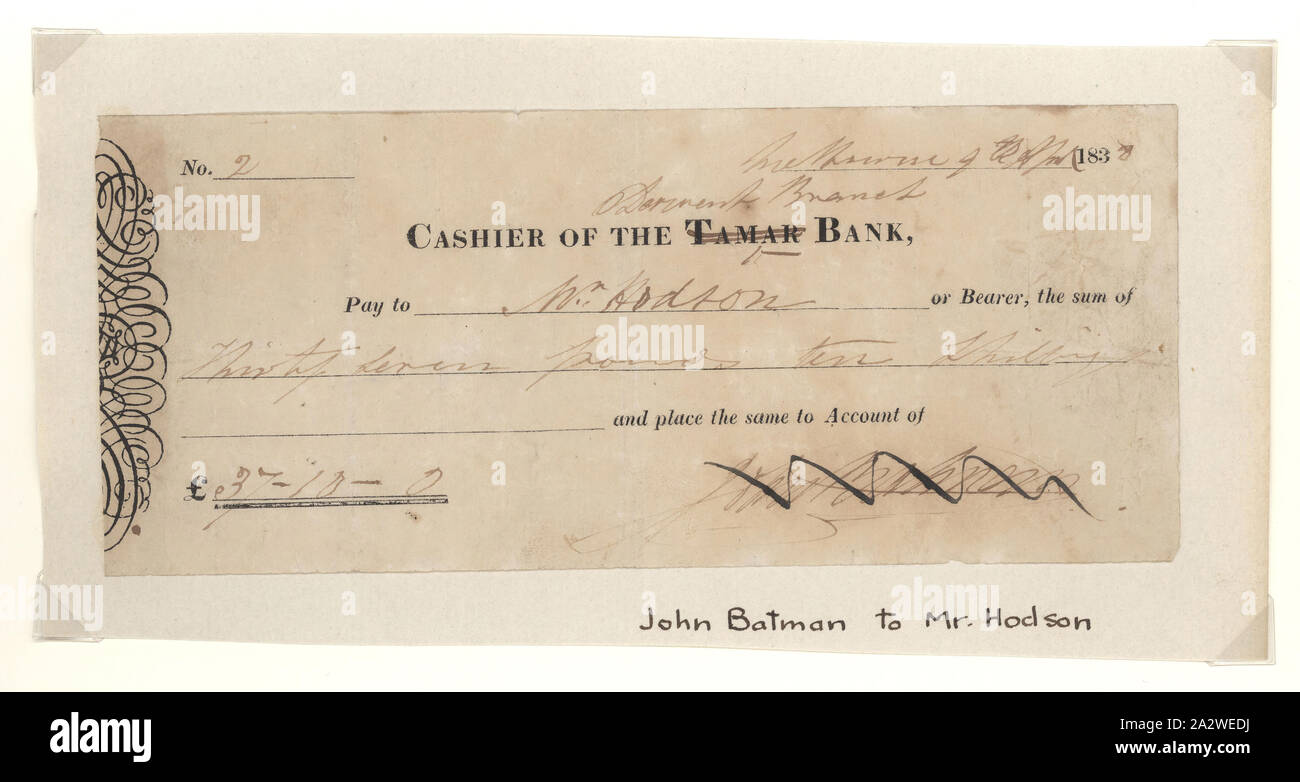 No. 2
Melbourne 9 1838
Derwent Branch
CASHIER OF THE TAMAR BANK,
Pay to Mr. Hodson or Bearer, the sum of
Thirty seven pounds ten Shillings
and place the same to Account of
£ 37-10-0
John Batman
John Batman to Mr. Hodson
alamy
Image ID: 2A2WEDJ
www.alamy.com